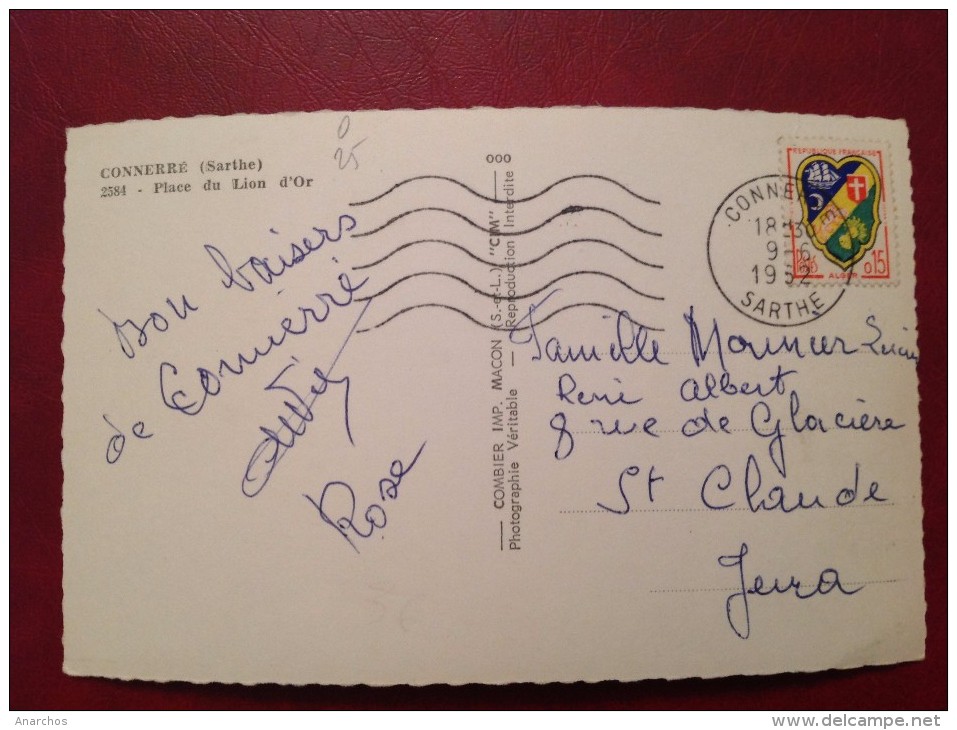 CONNERRÉ (Sarthe)
2584 - Place du Lion d'Or
0
25
Bon baisers
de Connerré
Rose
000
COMBIER IMP. MACON (S.-et-L.) "CIM"
Photographie Véritable - Reproduction Interdite
REPUBLIQUE FRANÇAISE
ALGER
0,15
CONNERRE
18 30
9-6
SARTHE
Famille Monnier
René Albert
8 rue de Glacière
St Claude
Jura
Anarchos
www.delcampe.net